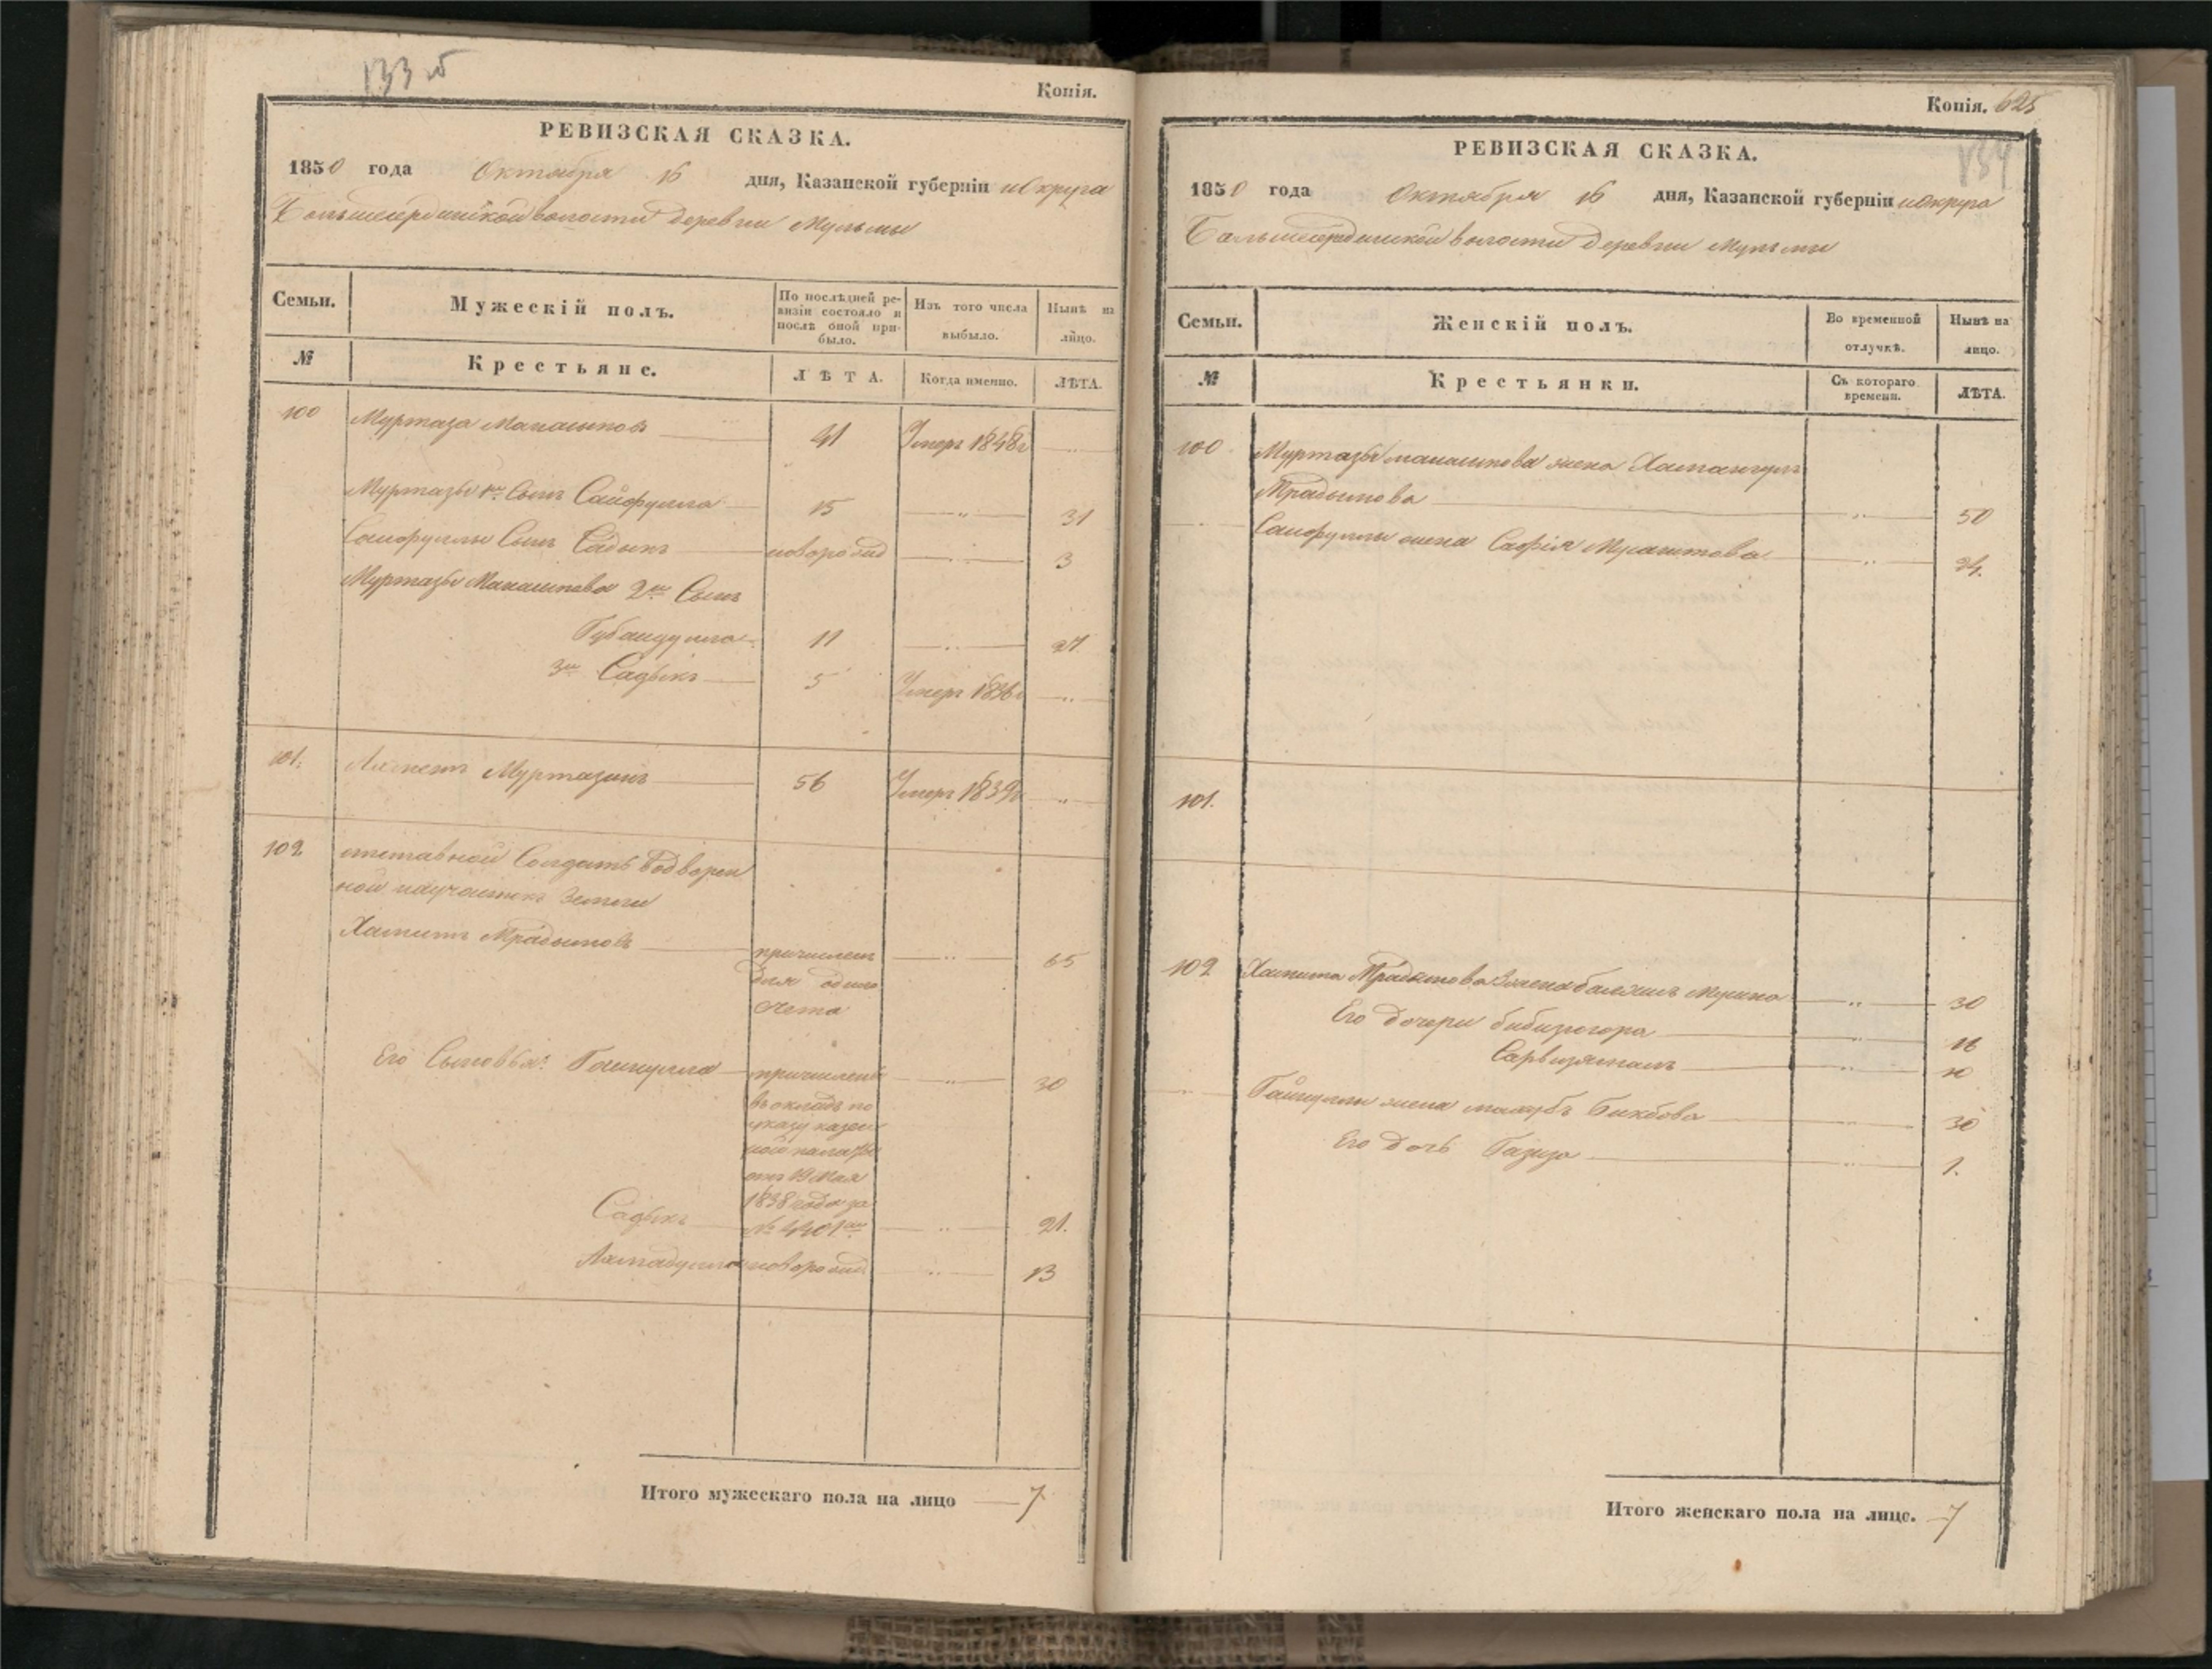 133 об
Копія.
РЕВИЗСКАЯ СКАЗКА.
1850 года Октября 16 дня, Казанской губерніи и Округа
Большесердинской волости деревни Мульмы
Семьи.
Мужескій полъ.
По послѣдней ре-
визіи состояло и
послѣ оной при-
было.
Изъ того числа
выбыло.
Нынѣ на
лицо.
№
Крестьяне.
ЛѢТА.
Когда именно.
ЛѢТА.
100 Муртаза 41 Умеръ 1848г
Муртазы 1й Сынъ Сайфулла 15 31
Сайфуллы Сынъ Садыкъ новорожд 3
Муртазы 2й Сынъ
Губайдулла 11 27
3й Садыкъ 5 Умеръ 1836г
101. Муртазинъ 56 Умеръ 1839г
102 отставной Солдатъ водворен
ной на участкѣ земли
Хамитъ причисленъ 65
для одного
счета
Его Сыновья: Гайнулла причислены 30
въ окладъ по
указу казен
ной палаты
отъ 19 Мая
1838 года за
Садыкъ № 4401мъ 21.
новорожд 13
Итого мужескаго пола на лицо 7
Копія. 625
134
РЕВИЗСКАЯ СКАЗКА.
1850 года Октября 16 дня, Казанской губерніи и Округа
Большесердинской волости деревни Мульмы
Семьи.
Женскій полъ.
Во временной
отлучкѣ.
Нынѣ на
лицо.
№
Крестьянки.
Съ котораго
времени.
ЛѢТА.
100 Муртазы жена
50
Сайфуллы жена Сафія 24.
101.
102 Хамита жена Мусина 30
Его дочери бибизюгора 16
Сарвизямалъ 10
Гайнуллы жена Бикбова 30
Его дочь Газиза 1.
Итого женскаго пола на лицо. 7